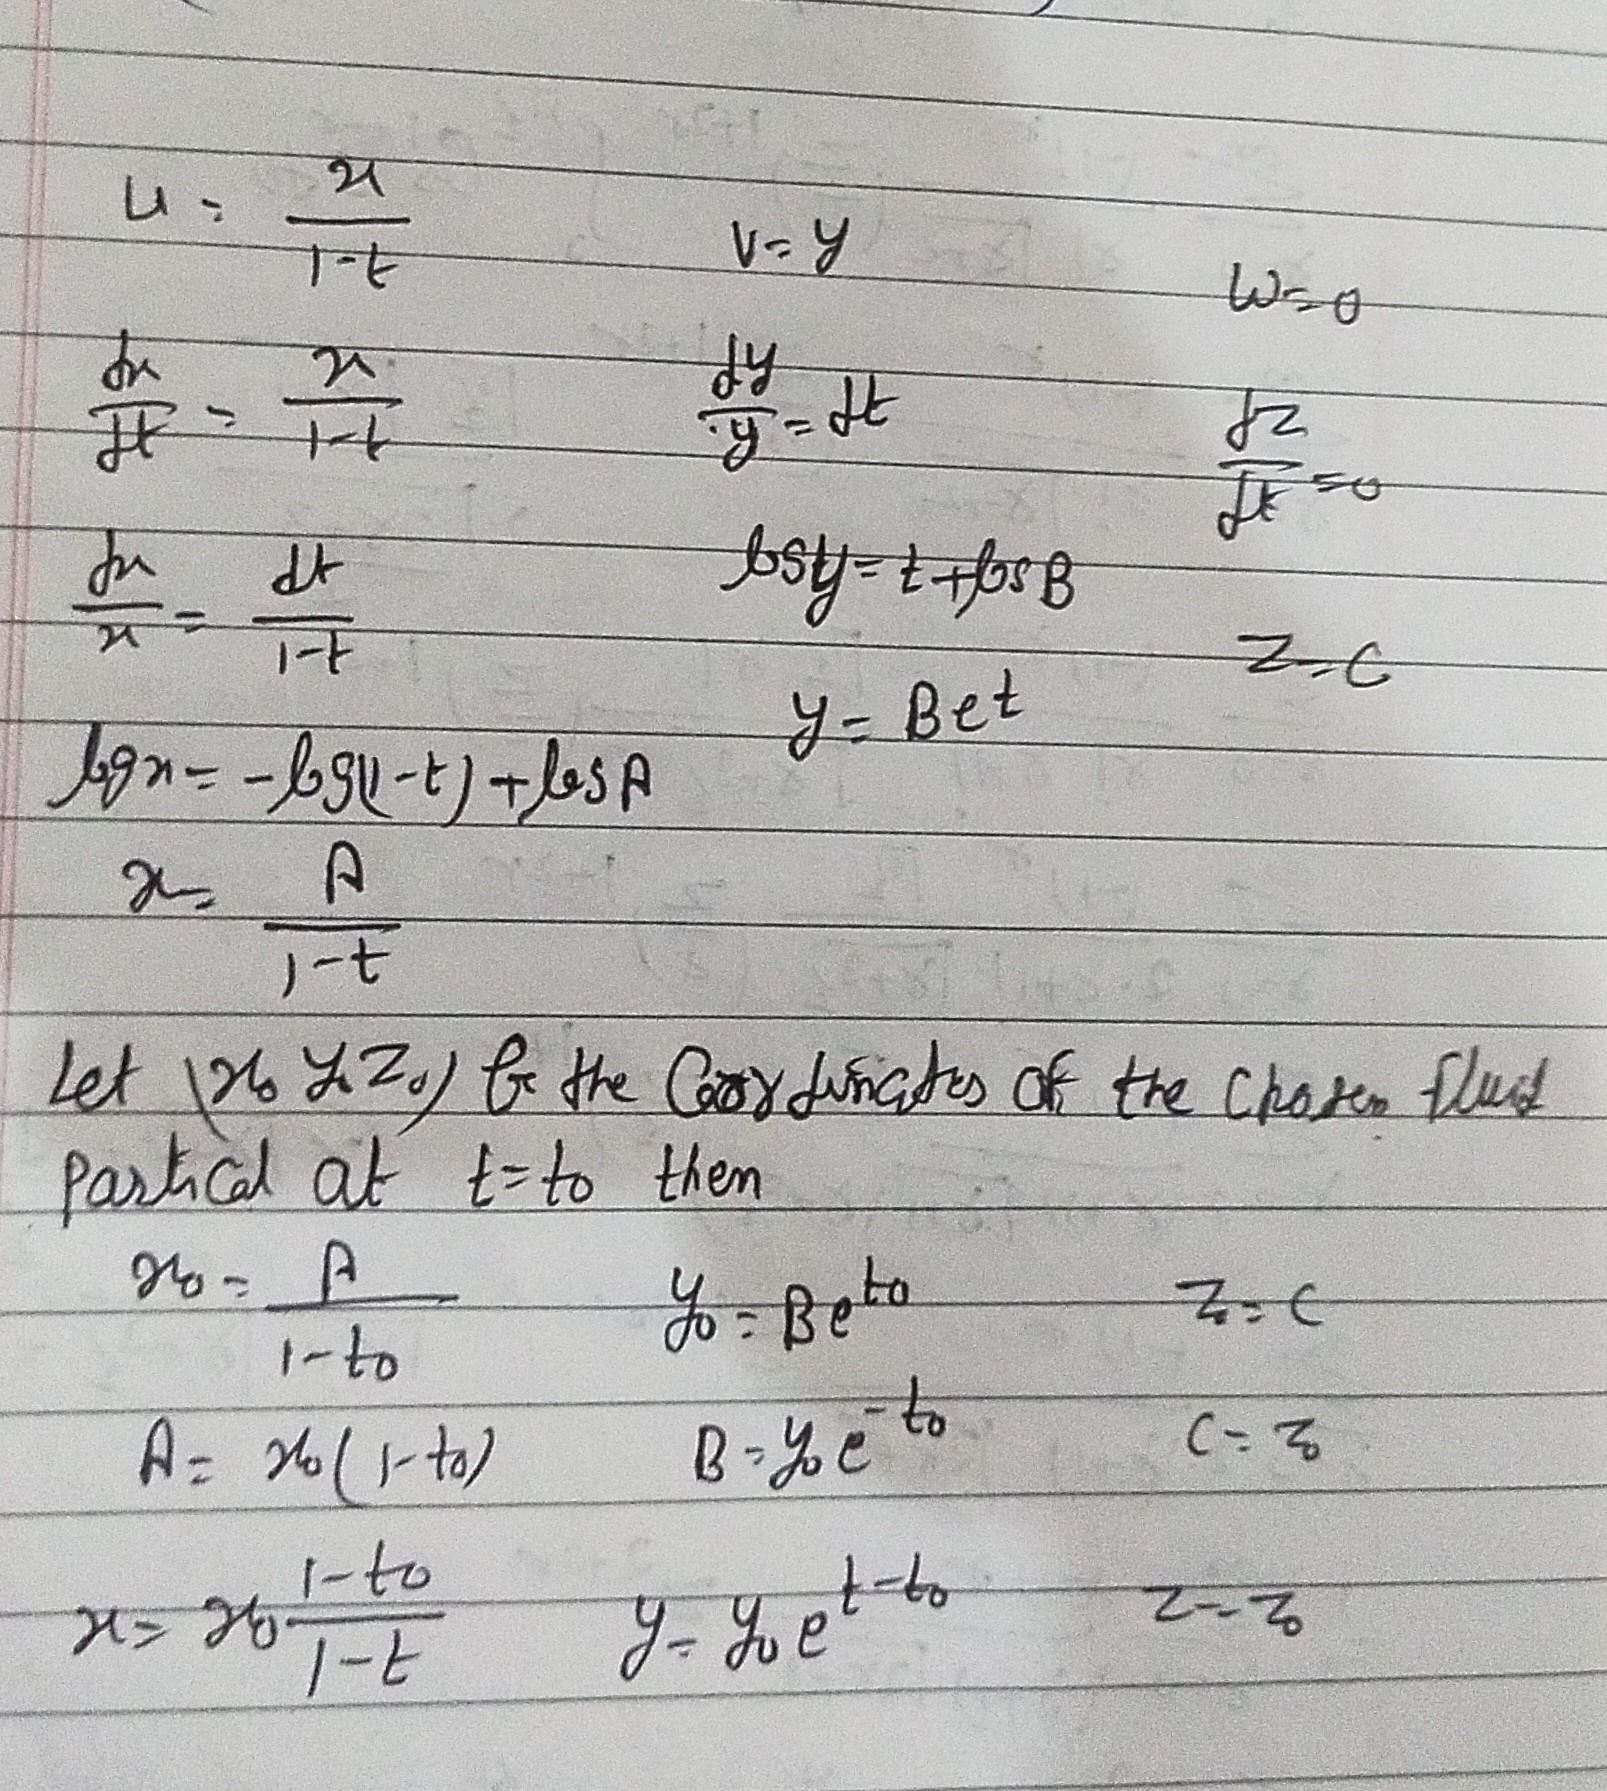 u = x/(1-t)    v = y    w = 0
dx/dt = x/(1-t)    dy/y = dt    dz/dt = 0
dx/x = dt/(1-t)    log y = t + log B    z = c
log x = -log(1-t) + log A    y = Be^t
x = A/(1-t)
Let (x₀ y₀ z₀) be the Coordinates of the chosen fluid
Partical at t = t₀ then
x₀ = A/(1-t₀)    y₀ = Be^t₀    z₀ = c
A = x₀(1-t₀)    B = y₀e^-t₀    c = z₀
x = x₀ (1-t₀)/(1-t)    y = y₀e^(t-t₀)    z = z₀